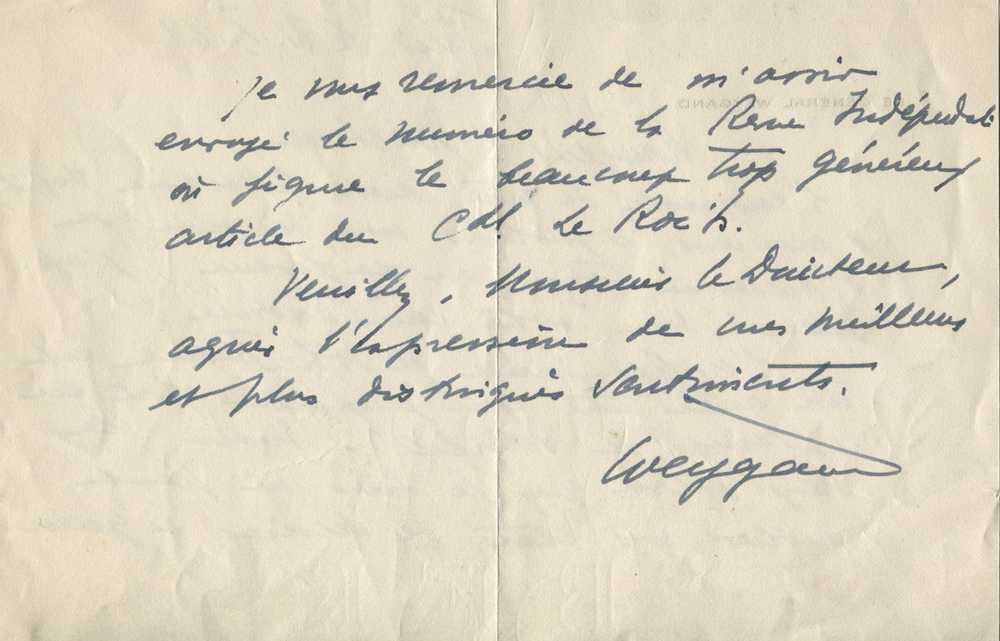 Je vous remercie de m'avoir
envoyé le numéro de la Revue Indépendte
où figure le beaucoup trop généreux
article du Cdt Le Roc'h.
Veuillez, Monsieur le Directeur,
agréer l'expression de mes meilleurs
et plus distingués sentiments.
Weygand
LE GÉNÉRAL WEYGAND